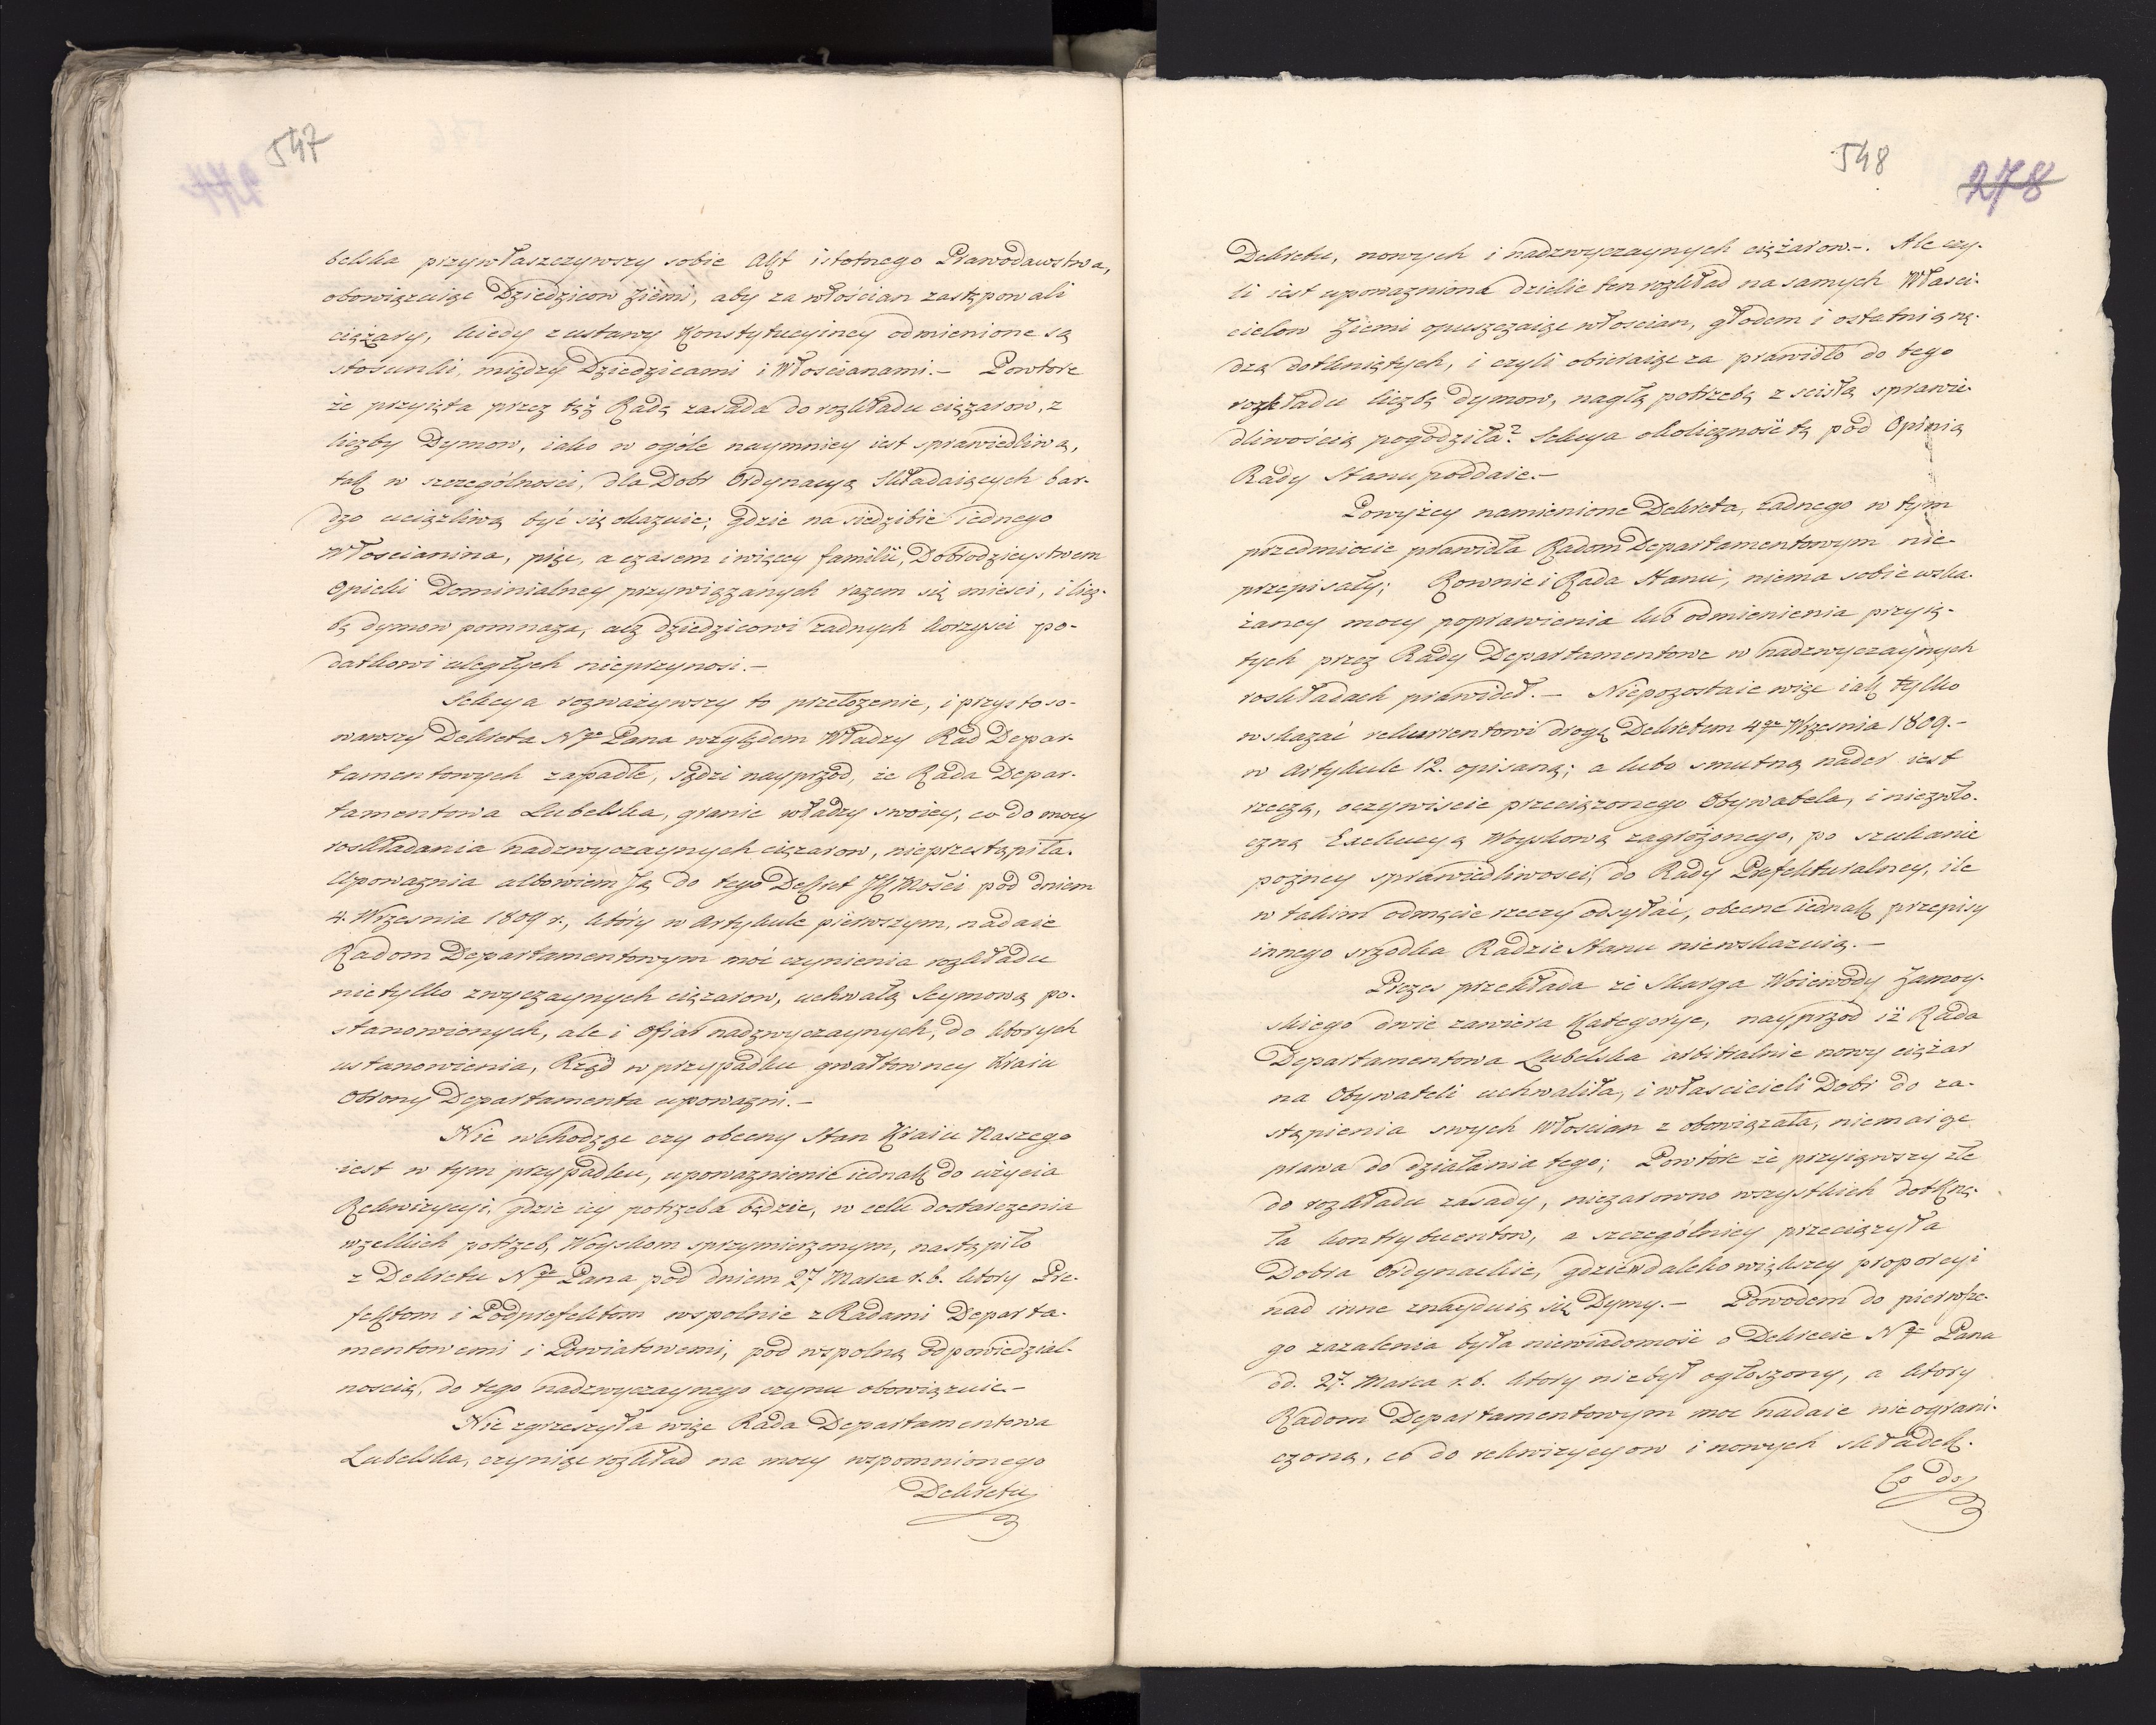 547
belska przywłaszczywszy sobie Akt istotnego Prawodawstwa,
obowiązuiąc Dziedzicow Ziemi, aby za włościan zastępowali
ciężary, kiedy z ustawy Konstytucyiney odmienione są
stosunki, między Dziedzicami i Włościanami.– Powtore
że przyięta przez tęż Radę zasada do rozkładu ciężarow, z
liczby Dymow, iako w ogóle naymniey iest sprawiedliwą,
tak w szczególności, dla Dobr Ordynacyą składaiących bar-
dzo uciążliwą być się okazuie; gdzie na siedzibie iednego
Włościanina, pięc, a czasem i więcey familii, Dobrodzieystwem
Opieki Dominialney przywiązanych razem się mieści, i licz-
bę dymow pomnaża, ale dziedzicowi żadnych korzyści po-
datkowi uległych nieprzynosi.–
Sekcya rozważywszy to przełożenie, i przystoso-
wawszy Dekreta Ngo Pana względem Władzy Rad Depar-
tamentowych zapadłe, sądzi nayprzod, że Rada Depar-
tamentowa Lubelska, granic władzy swoiey, co do mocy
roskładania nadzwyczaynych ciężarow, nieprzestąpiła.
Upoważnia albowiem Ją do tego Dekret JK Mości pod dniem
4. Września 1809 r., który w Artykule pierwszym, nadaie
Radom Departamentowym moc czynienia rozkładu
nietylko zwyczaynych ciężarow, uchwałą Seymową po-
stanowionych, ale i Ofiar nadzwyczaynych, do ktorych
ustanowienia, Rząd w przypadku gwałtowney Kraiu
Obrony Departamenta upoważni.–
Nie wchodząc czy obecny Stan Kraiu Naszego
iest w tym przypadku, upoważnienie iednak do użycia
Rekwizycyi, gdzie iey potrzeba będzie, w celu dostarczenia
wzelkich potrzeb, Woyskom sprzymierzonym, nastąpiło
z Dekretu Ngo Pana pod dniem 27 Marca r. b. ktory Pre-
fektom i Podprefektom wspolnie z Radami Departa-
mentowemi i Powiatowemi, pod wspolną odpowiedzial-
nością, do tego nadzwyczaynego czynu obowiązuie.–
Nie zgrzeszyła więc Rada Departamentowa
Lubelska, czyniąc rozkład na mocy wspomnionego
Dekretu
548
278
Dekretu, nowych i nadzwyczaynych ciężarow.–. Ale czy-
li iest upoważniona dzielić ten rozkład na samych Właści-
cielow Ziemi opuszczaiąc włościan, głodem i ostatnią nę-
dzą dotkniętych, i czyli obieraiąc za prawidło do tego
rozkładu liczbę dymow, nagłą potrzebę z ścisłą sprawie-
dliwością pogodziła? Sekcya okoliczność tę pod Opinią
Rady Stanu poddaie.–
Powyżey namienione Dekreta, żadnego w tym
przedmiocie prawidła Radom Departamentowym nie-
przepisały; Rownie i Rada Stanu, niema sobie wska-
zaney mocy poprawienia lub odmienienia przyię-
tych przez Rady Departamentowe w nadzwyczaynych
roskładach prawideł.– Niepozostaie więc iak tylko
wskazać rekurrentowi drogę Dekretem 4go Września 1809.–
w Artykule 12. opisaną; a lubo smutną nader iest
rzeczą, oczywiście przeciążonego Obywatela, i niezwło-
czną Exekucyą Woyskową zagrożonego, po szukanie
poźney sprawiedliwości, do Rady Prefekturalney, ile
w takim odmęcie rzeczy odsyłać, obecne iednak przepisy
innego srzodka Radzie Stanu niewskazuią.–
Prezes przekłada że Skarga Woiewody Zamoy-
skiego dwie zawiera Kategorye, nayprzod iż Rada
Departamentowa Lubelska arbitralnie nowy ciężar
na Obywateli uchwaliła, i właścicieli Dobr do za-
stąpienia swych Włościan zobowiązała, niemaiąc
prawa do działania tego; Powtóre że przyiąwszy złe
do rozkładu zasady, niezarowno wszystkich dotknę-
ła kontrybuentow, a szczególniey przeciążyła
Dobra Ordynackie, gdzie w daleko większey proporcyi
nad inne znayduią się Dymy.– Powodem do pierwsze-
go zażalenia była niewiadomość o Dekrecie Ngo Pana
dd. 27. Marca r. b. ktory niebył ogłoszony, a ktory
Radom Departamentowym moc nadaie nieograni-
czoną, co do rekwizycyow i nowych składek.
Co do